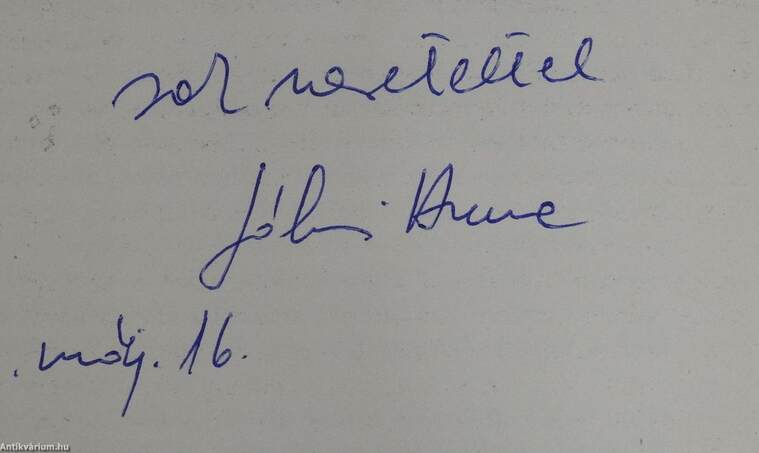 sok szeretettel
Jókai Anna
. máj. 16.
Antikvárium.hu